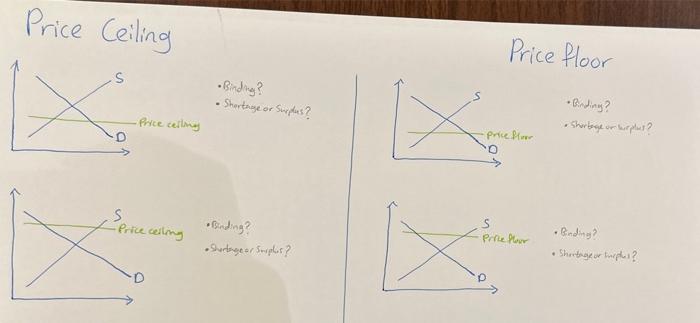 Price Ceiling
S
• Binding?
• Shortage or Surplus?
Price ceiling
D
S
Price ceiling
• Binding?
• Shortage or Surplus?
D
Price floor
S
• Binding?
• Shortage or surplus?
Price floor
D
S
Price floor
• Binding?
• Shortage or surplus?
D